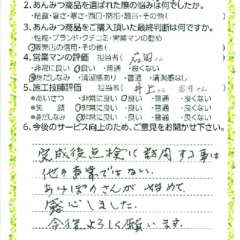 2.あんみつ商品を選ばれた際の悩みは何でしたか。
・結露・暑さ・寒さ・西日・防犯・騒音・その他(
3.あんみつ商品をご購入頂いた最終判断は何ですか。
・性能・ブランド・クチコミ・営業マンの勧め
・販売店の信用・その他(
4.営業マンの評価 担当者(
・非常に良い ・良い ・普通 ・良くない
・身だしなみ ・清潔感あり ・普通 ・清潔感なし
5.施工技師評価 担当者(井上さん
*あいさつ ・非常に良い ・良い ・普通 ・良くない
*笑顔 ・非常に良い ・良い ・普通 ・良くない
*身だしなみ ・非常に良い ・良い ・普通 ・良くない
6.今後のサービス向上のため、ご意見をお聞かせ下さい。
完成後点検に訪問する事は
他の事業ではない。
あけぼのさんが始めて
感心しました。
今後よろしく願います。